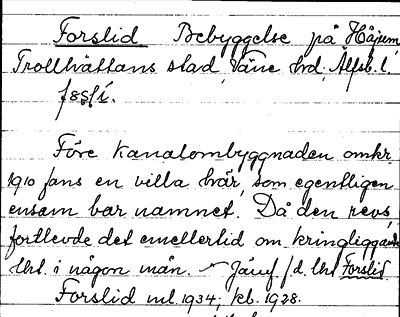 Forslid Bebyggelse på Håjum,
Trollhättans stad, Väne hd. Älfsb. l.
Före kanalombyggnaden omkr.
1910 fans en villa här, som egentligen
ensam bar namnet. Då den revs,
fortlevde det emellertid om kringliggande
i någon mån. Forslid
Forslid ml. 1934; kb. 1928.